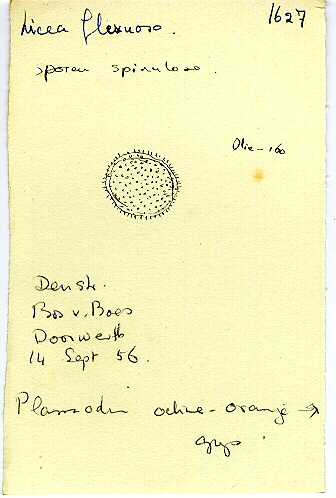 1627
Licea flexuosa.
sporen spinulose.
Olie-160
Denstr.
Bos v. Boes
Doorwerth
14 Sept 56.
Plasmodium ochre-oranje →
grys